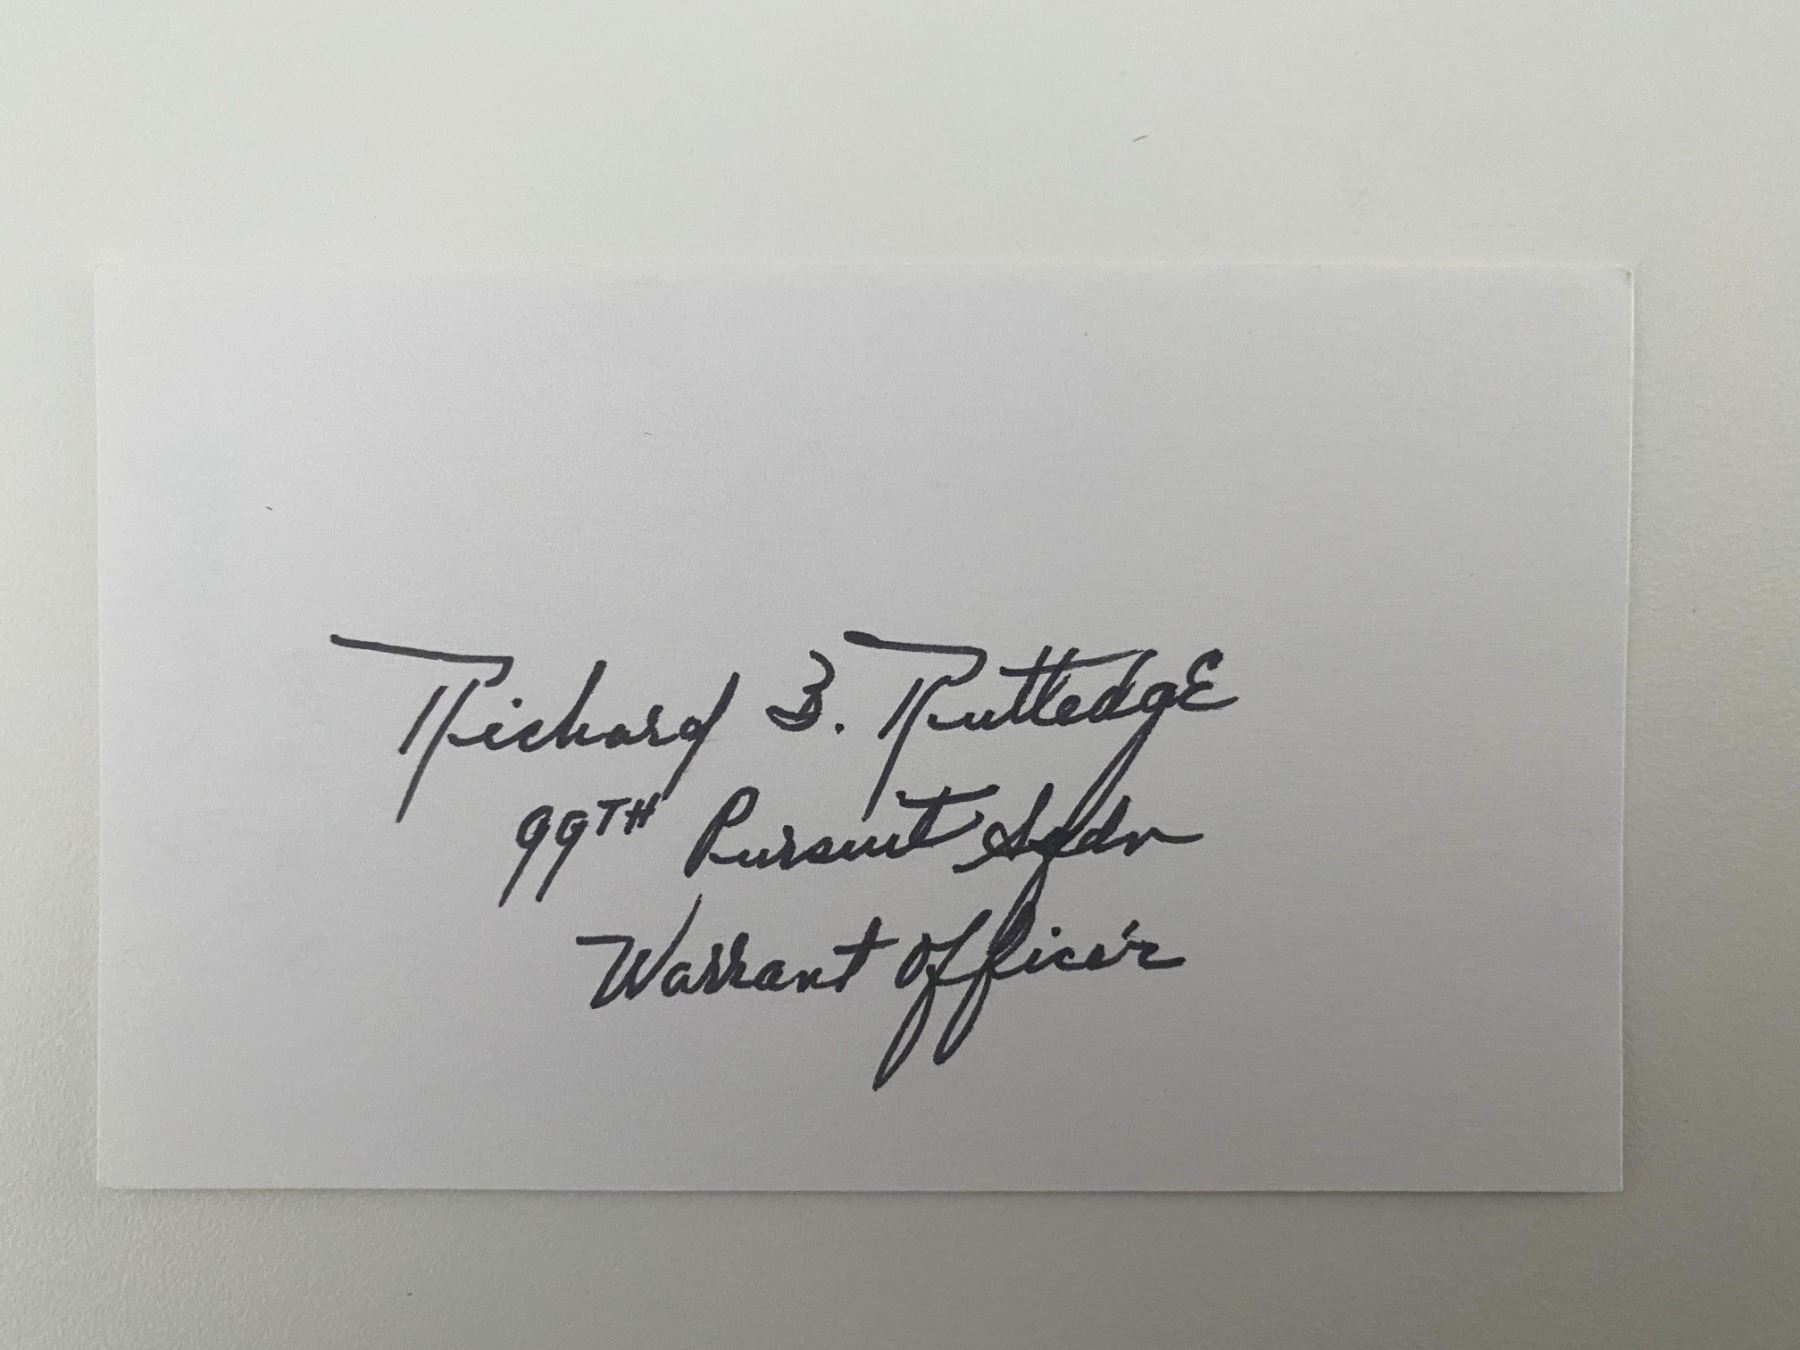 Richard B. Rutledge
99TH Pursuit Sqdn
Warrant Officer